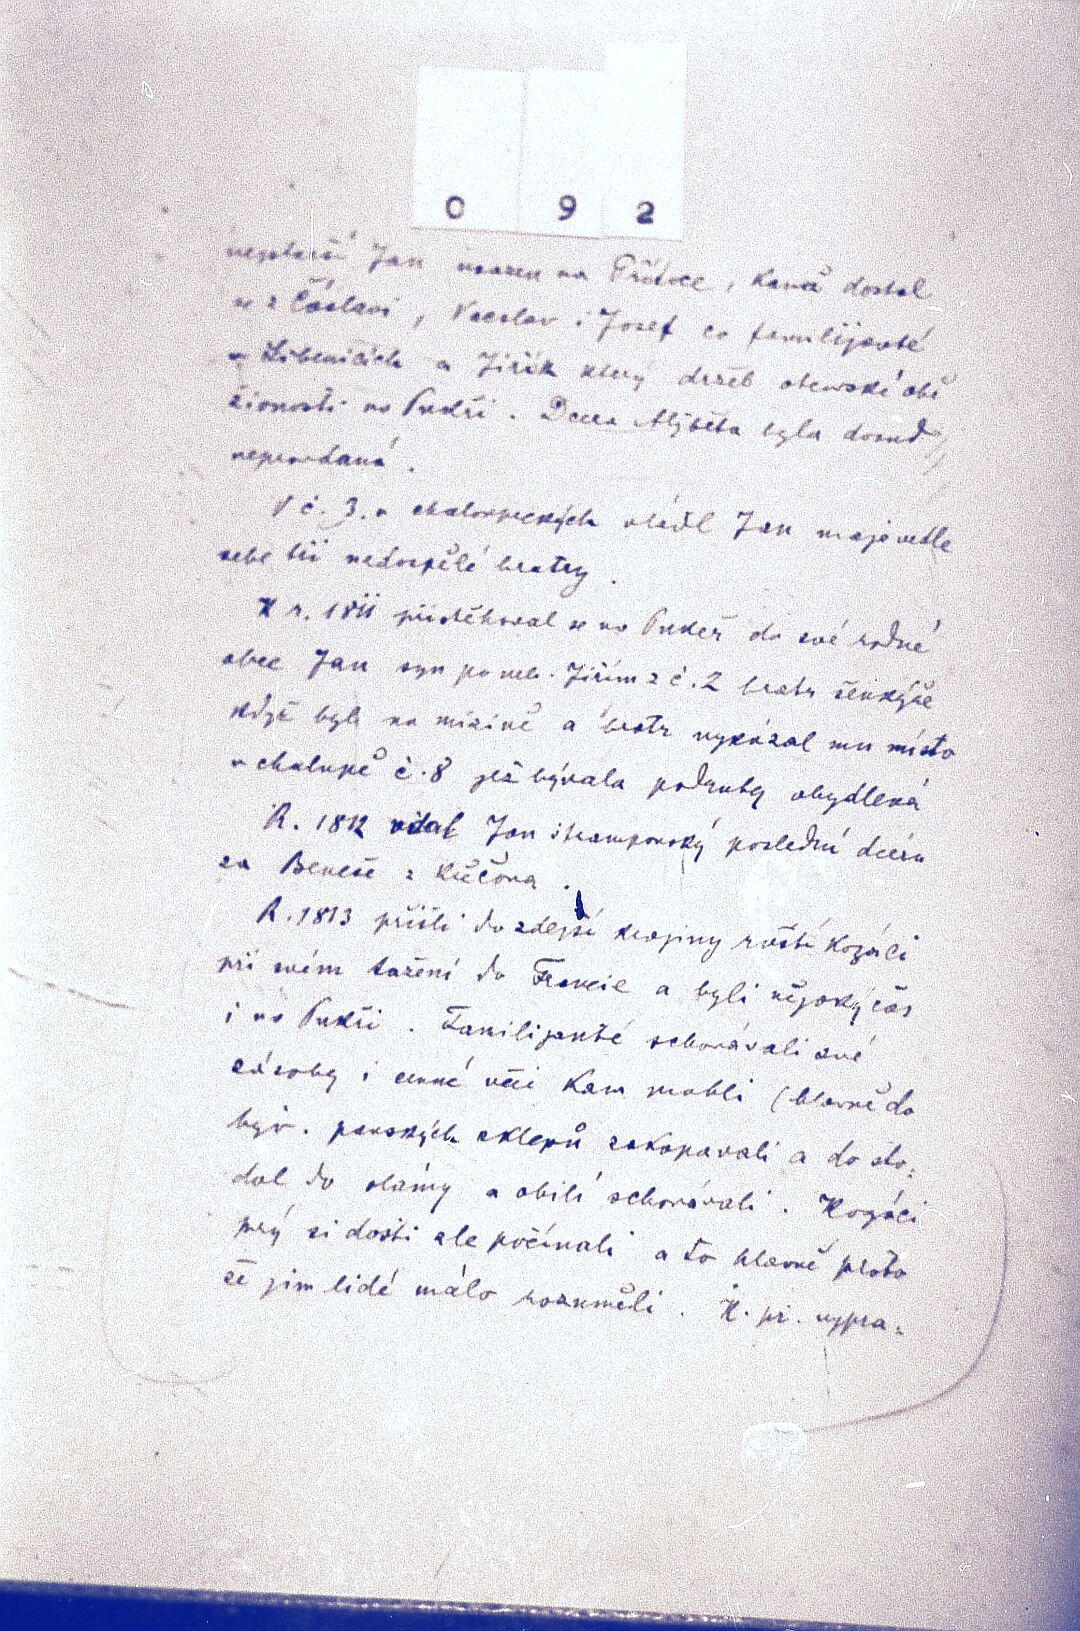 0 9 2
nejstarší Jan usazen na Přítoce, kamž dostal
se z Čáslavi, Vaclav i Josef co familijanté
v Libenicích a Jiřík který držel otcovské obě
živnosti na Pukři. Dcera Alžběta byla dosud
neprovdaná.
V č. 3. v chalupnických vládl Jan maje vedle
sebe tři nedospělé bratry.
K r. 1811 přistěhoval se na Pukeř do své rodné
obce Jan syn po neb. Jiřím z č. 2 bratr šenkýře
když byl na mizině a bratr vykázal mu místo
v chalupě č. 8 jež bývala podruhy obydlená
R. 1812 vdal Jan Štampovský poslední dceru
za Beneše z Křečova.
R. 1813 přišli do zdejší krajiny ruští kozáci
při svém tažení do Francie a byli nějaký čas
i na Pukři. Familijanté schovávali své
zásoby i cenné věci kam mohli (hlavně do
býv. panských sklepů zakopávali a do sto-
dol do slámy a obilí schovávali. Kozáci
prý si dosti zle počínali a to hlavně proto
že jim lidé málo rozuměli. K. př. vypra-